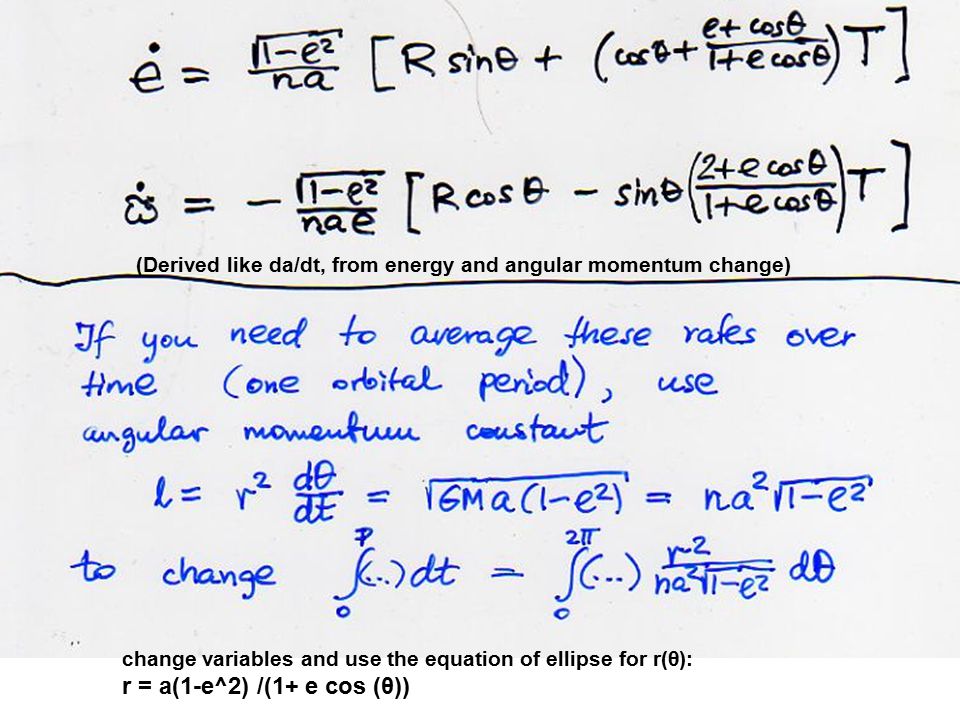 ė = √(1-e²)/na [R sinθ + (cosθ + (e + cosθ)/(1+e cosθ)) T]
ω̃̇ = - √(1-e²)/nae [R cosθ - sinθ ((2+e cosθ)/(1+e cosθ)) T]
(Derived like da/dt, from energy and angular momentum change)
If you need to average these rates over
time (one orbital period), use
angular momentum constant
l = r² dθ/dt = √(GMa(1-e²)) = na²√(1-e²)
to change ∫₀ᴾ(...)dt = ∫₀²ᵖⁱ(...) r²/(na²√(1-e²)) dθ
change variables and use the equation of ellipse for r(θ):
r = a(1-e^2) /(1+ e cos (θ))